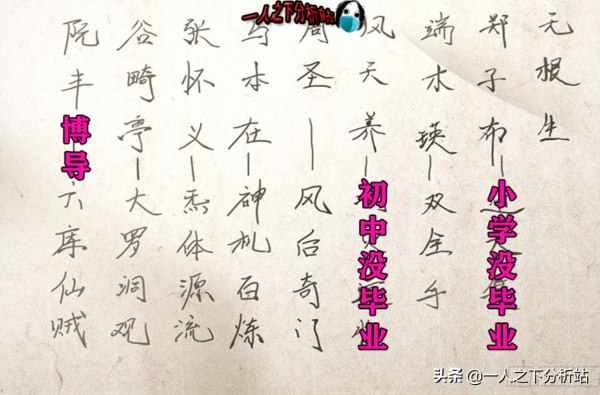 一人之下分析站
无根生
郑子布—
小学没毕业
端木瑛—双全手
风天养—
初中没毕业
周圣—风后奇门
马本在—神机百炼
张怀义—炁体源流
谷畸亭—大罗洞观
阮丰—六库仙贼
博导
头条 @一人之下分析站